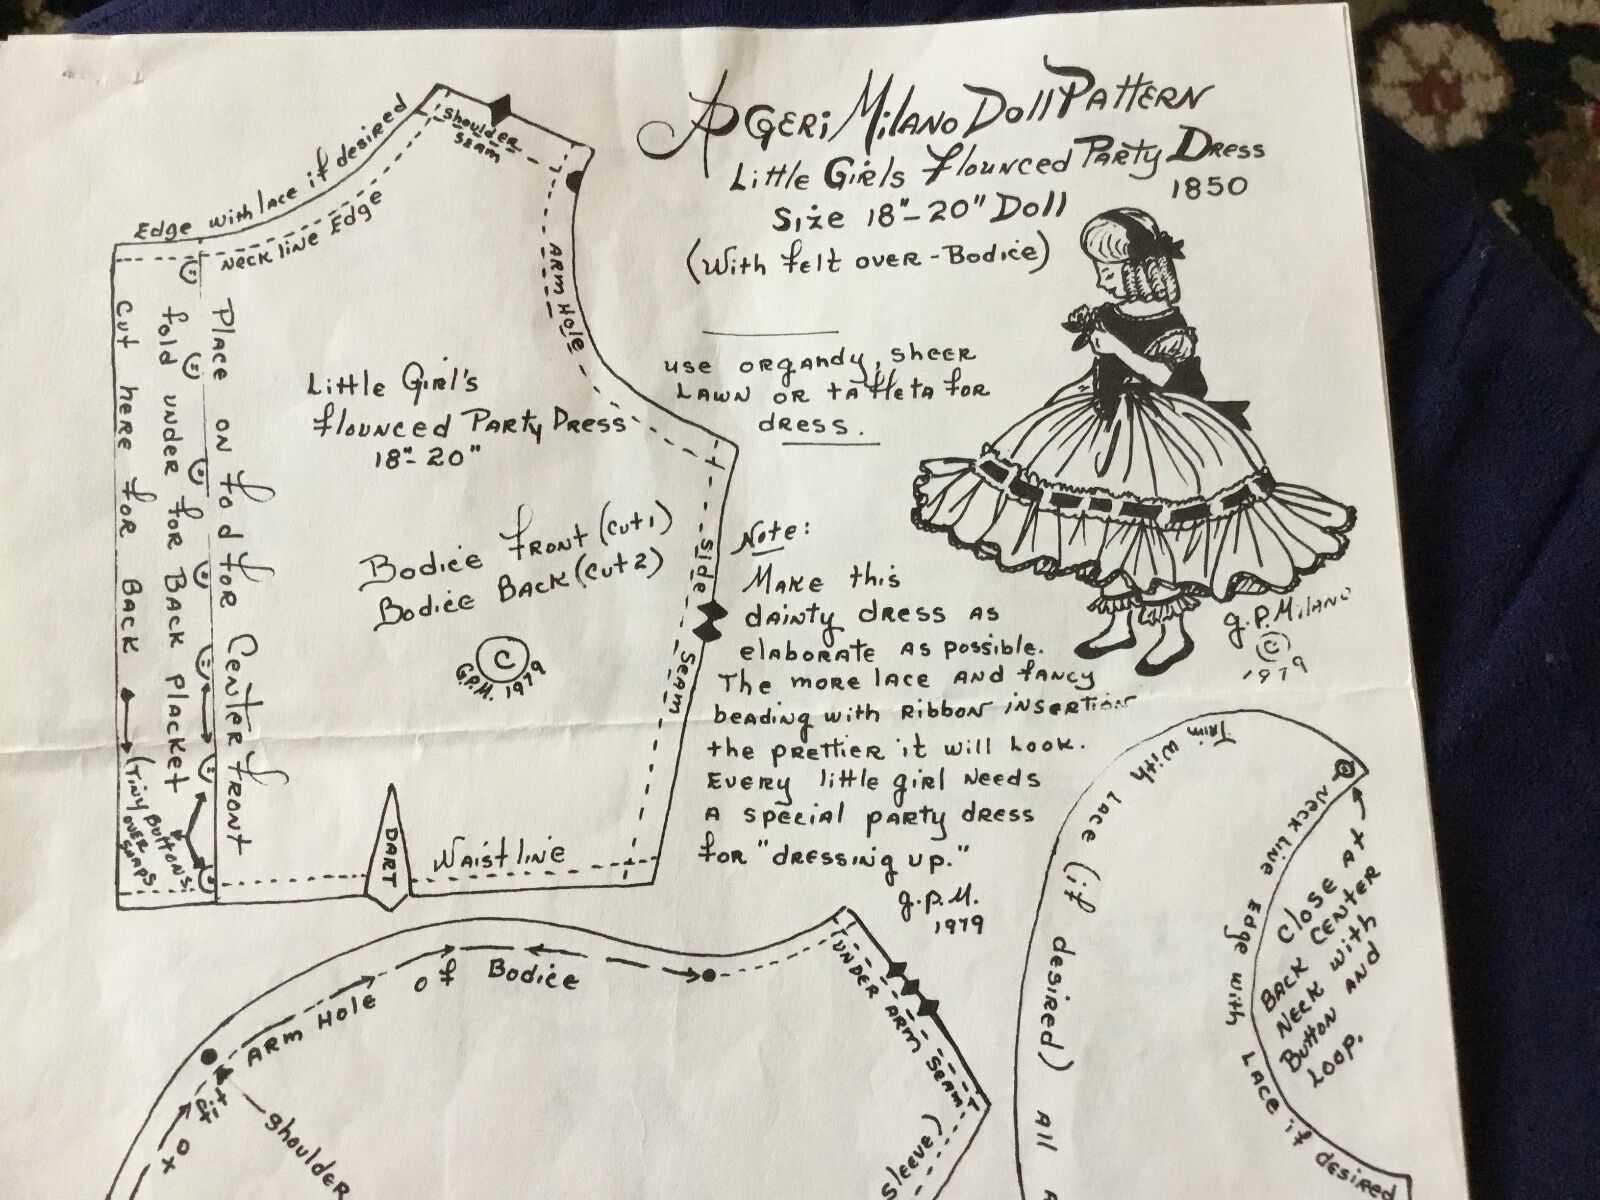 A GERI MILANO DOLL PATTERN
LittLE GiRLS flOUNCED PARty DRESS
1850
SizE 18"-20" DOll
(With felt over-Bodice)
USE ORGANdy, SHEER
LAWN OR tAffEtA foR
dRESS.
Note:
MAKE this
dAiNty dRESS AS
ElAboRAtE AS possiblE.
The moRE lACE AND fANCy
bEAdiNg with RibboN iNSERtioN
thE pREttiER it will look.
EVERy littlE giRl NEEdS
A SpEciAl pARty dRESS
foR "dRESSiNg up."
g.p.M.
1979
g.P.MilANO
©
1979
Edge with lace if desired
Shoulder
SEAM
NECK liNE EdgE
ARM HolE
Little Girl's
flouNCEd PARty DRESS
18"-20"
BodicE fRONt (cut 1)
BodicE BACK (cut 2)
©
G.P.M. 1979
SidE SEAM
PlACE ON fold foR CENtER fRONt
fold UNDER foR BACK PlACKEt
CUt HERE foR BACK
(TiNy
BUttoNS
OVER
SNAPS.
DARt
WAistliNE
ARM HolE of BodicE
UNdER ARM SEAM
to fit
shoulder
slEEVE)
TRiM with LACE (if dESiRED) All
NECKliNE EdgE with LACE if dESiREd
ClosE At
CENtER
BACK
NECK with
ButtoN AND
Loop.